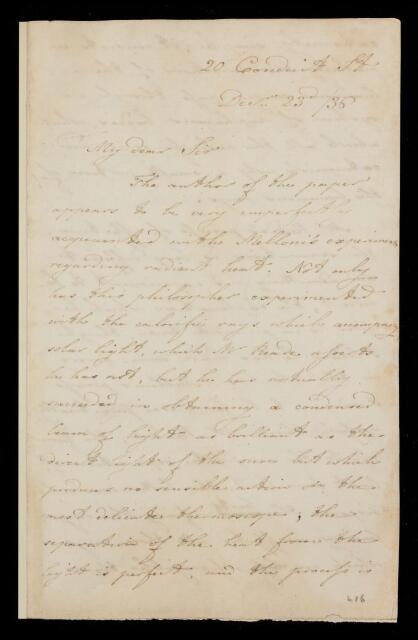 20 Conduit St
Decr. 23rd /36
My dear Sir
The author of this paper
appears to be very imperfectly
acquainted with Melloni's experiments
regarding radiant heat. Not only
has this philosopher experimented
with the calorific rays which accompany
solar light, which Mr Reade asserts
he has not, but he has actually
succeeded in obtaining a condensed
beam of light as brilliant as the
direct light of the sun but which
produces no sensible action on the
most delicate thermoscope; the
separation of the heat from the
light is perfect, and the process is
416